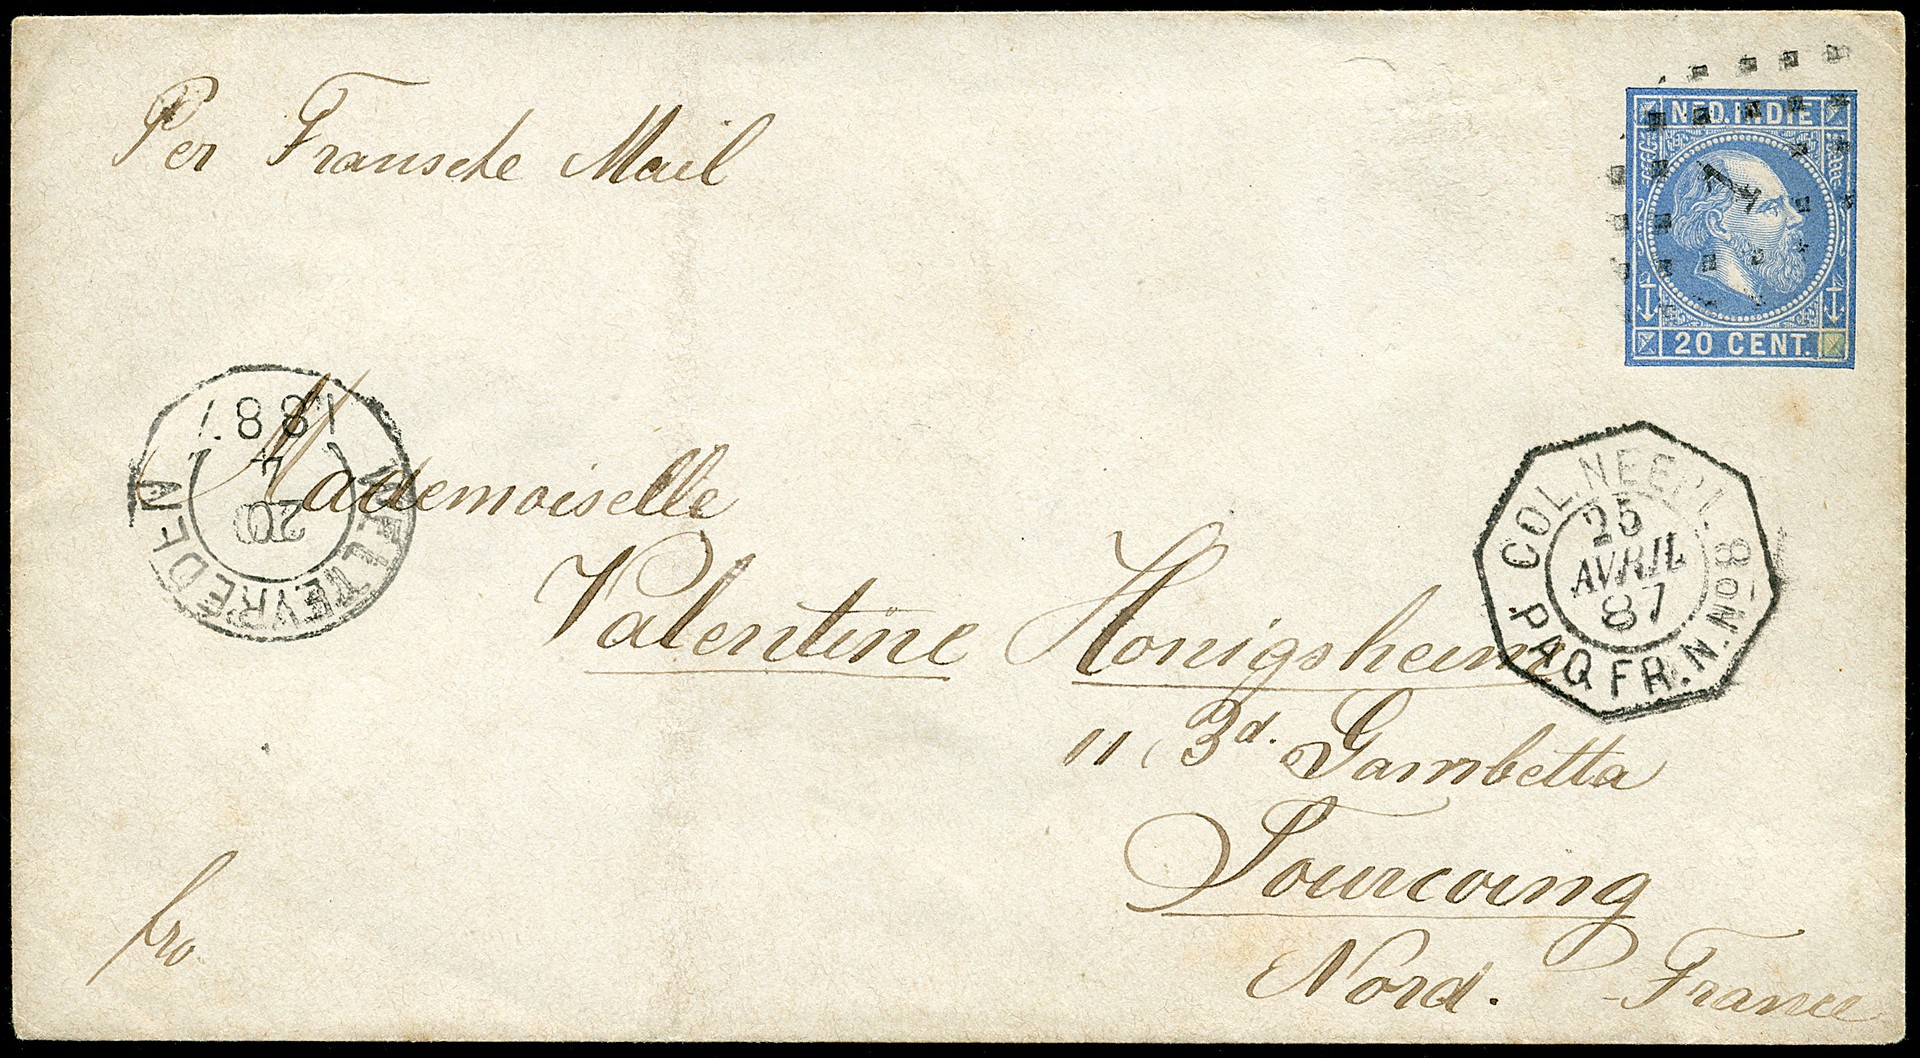 Per Fransche Mail
NED. INDIE
20 CENT.
WELTEVREDEN
20
4
1887
COL. NEERL. 8
25
AVRIL
87
PAQ. FR. N. No
Mademoiselle
Valentine Honigsheim
11 Bd. Gambetta
Tourcoing
Nord. France
fro